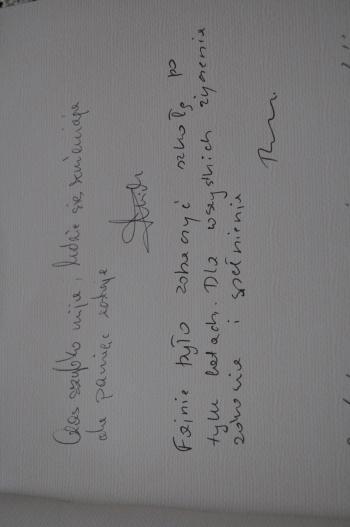 Czas szybko mija, ludzie się zmieniają
ale pamięć zostaje
Fajnie było zobaczyć szkołę po
tylu latach. Dla wszystkich życzenia
zdrowia i spełnienia